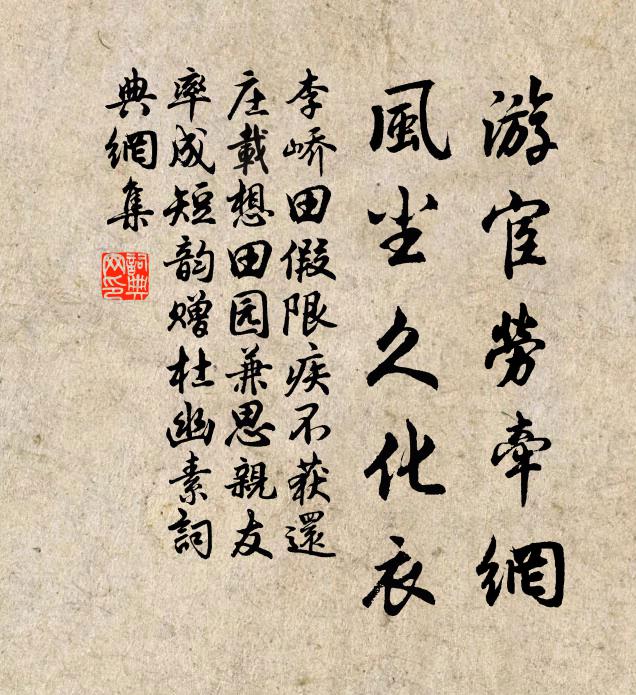 游宦勞牽網
風尘久化衣
李嶠田假限疾不获還
庄載想田园兼思親友
率成短韵赠杜幽素詞
典網集
詞典网印